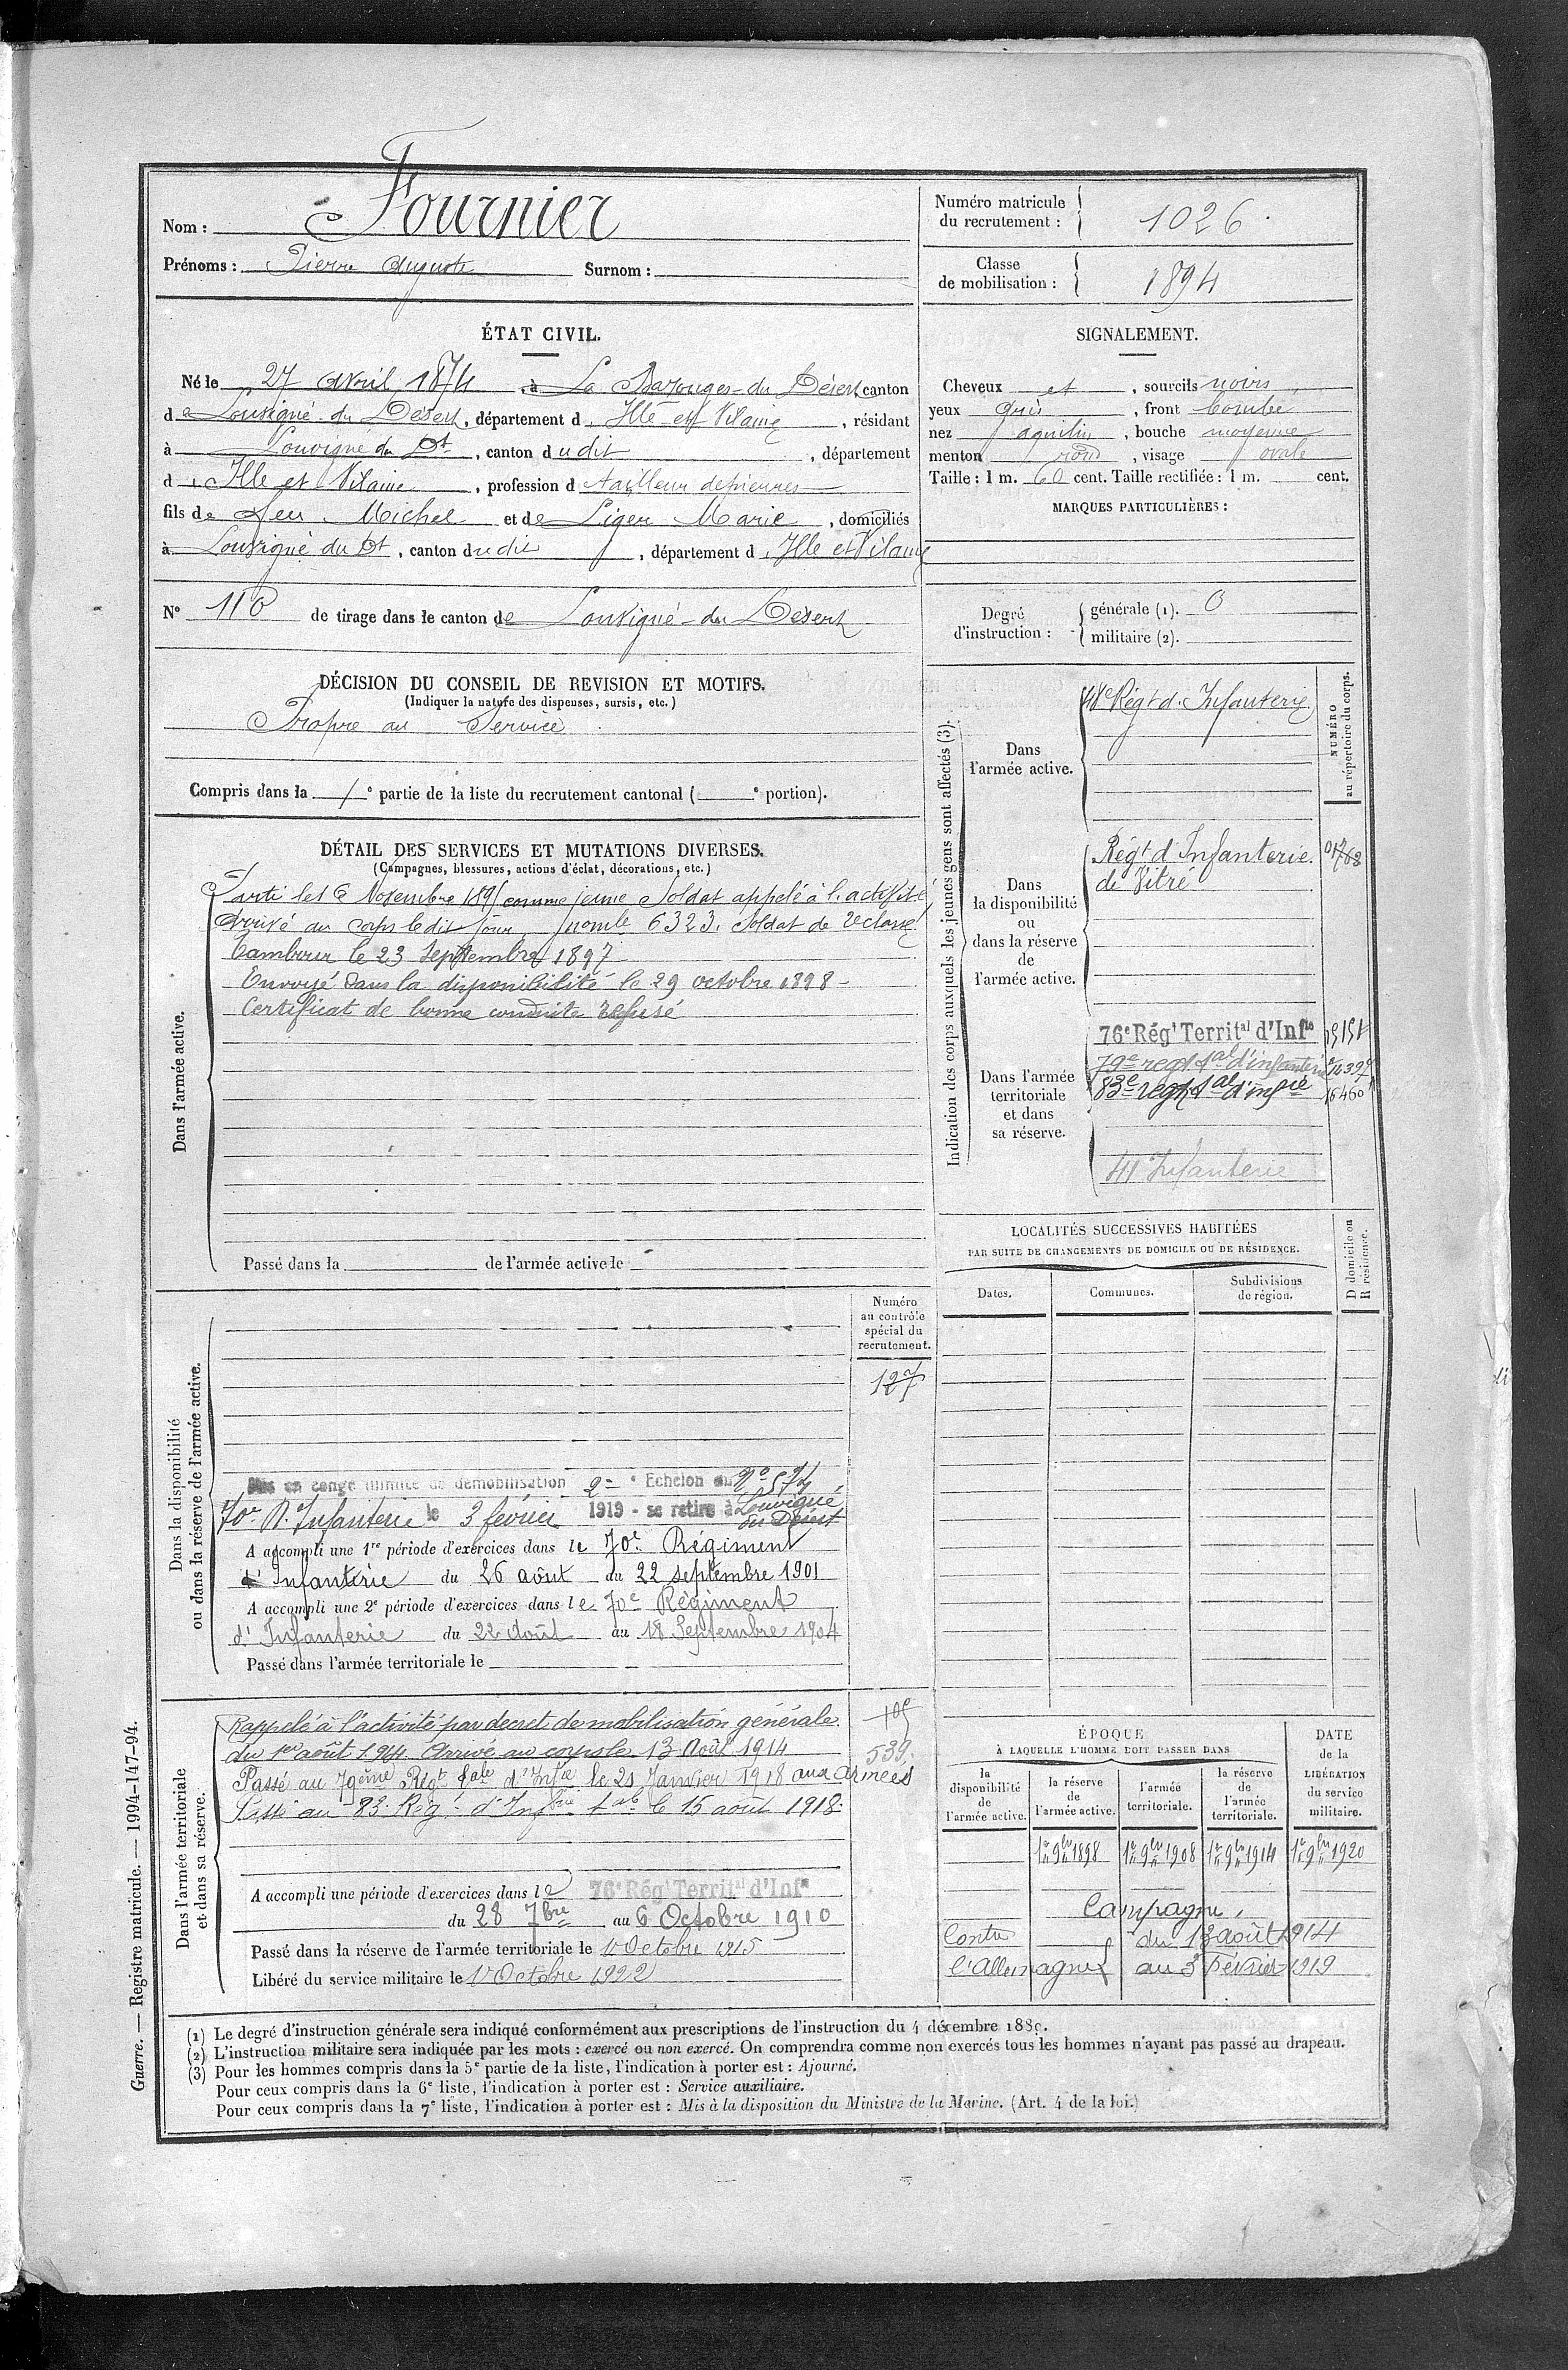 Nom : Fournier
Prénoms : Pierre Auguste Surnom :
Numéro matricule du recrutement : 1026.
Classe de mobilisation : 1894
ÉTAT CIVIL.
Né le 27 Avril 1874, à La Bazouges-du Désert, canton
de Louvigné-du Désert, département d'Ille-et-Vilaine, résidant
à Louvigné du Dt, canton dudit, département
d'Ille et Vilaine, profession d tailleur de pierres
fils de feu Michel et de Liger Marie, domiciliés
à Louvigné du Dt, canton dudit, département d'Ille et Vilaine
N° 110 de tirage dans le canton de Louvigné-du Désert
DÉCISION DU CONSEIL DE REVISION ET MOTIFS.
(Indiquer la nature des dispenses, sursis, etc.)
Propre au Service
Compris dans la 1e partie de la liste du recrutement cantonal ( e portion).
SIGNALEMENT.
Cheveux et, sourcils noirs
yeux gris, front bombé
nez aquilin, bouche moyenne
menton rond, visage ovale
Taille : 1 m. 60 cent. Taille rectifiée : 1 m. cent.
MARQUES PARTICULIÈRES :
Degré d'instruction : générale (1). 0
militaire (2).
DÉTAIL DES SERVICES ET MUTATIONS DIVERSES.
(Campagnes, blessures, actions d'éclat, décorations, etc.)
Dans l'armée active.
Parti le 16 Novembre 1895 comme jeune Soldat appelé à l'activité
Arrivé au corps ledit jour, nomle 6323. Soldat de 2e classe
Tambour le 23 Septembre 1897
Envoyé dans la disponibilité le 29 octobre 1898 -
Certificat de bonne conduite Refusé
Passé dans la de l'armée active le
Indication des corps auxquels les jeunes gens sont affectés (3).
NUMÉRO au répertoire du corps.
Dans l'armée active.
48e Régt d'Infanterie
Dans la disponibilité ou dans la réserve de l'armée active.
Régt d'Infanterie.
de Vitré
Dans l'armée territoriale et dans sa réserve.
76e Régt Territal d'Infie
79e regt tal d'infanterie
83e regt tal d'infie 16460
41 Infanterie
LOCALITÉS SUCCESSIVES HABITÉES
PAR SUITE DE CHANGEMENTS DE DOMICILE OU DE RÉSIDENCE.
Dates. Communes. Subdivisions de région. D domicile ou R résidence.
Dans la disponibilité ou dans la réserve de l'armée active.
Numéro au contrôle spécial du recrutement.
127
Mis en congé illimité de démobilisation 2e Echelon du N° 574
70e R. Infanterie le 3 février 1919 - se retire à Louvigné
du Désert
A accompli une 1re période d'exercices dans le 70e Régiment
d'Infanterie du 26 août au 22 septembre 1901
A accompli une 2e période d'exercices dans le 70e Régiment
d'Infanterie du 22 Août au 18 Septembre 1904
Passé dans l'armée territoriale le
Dans l'armée territoriale et dans sa réserve.
Rappelé à l'activité par decret de mobilisation générale.
du 1er août 1914. Arrivé au corps le 13 Août 1914
539.
Passé au 79ème Régt tale d'Infie le 21 Janvier 1918 aux armées
Passé au 83. Régt d'Infrie tale le 15 août 1918.
A accompli une période d'exercices dans le 76e Régt Territal d'Infie
du 28 7bre au 6 Octobre 1910
Passé dans la réserve de l'armée territoriale le 1r Octobre 1915
Libéré du service militaire le 1r Octobre 1922
ÉPOQUE
À LAQUELLE L'HOMME DOIT PASSER DANS
la disponibilité de l'armée active. la réserve de l'armée active. l'armée territoriale. la réserve de l'armée territoriale.
DATE de la LIBÉRATION du service militaire.
1er 9bre 1898 1er 9bre 1908 1er 9bre 1914 1er 9bre 1920
Campagne.
Contre du 13 août 1914
l'Allemagne au 3 Février 1919
(1) Le degré d'instruction générale sera indiqué conformément aux prescriptions de l'instruction du 4 décembre 1889.
(2) L'instruction militaire sera indiquée par les mots : exercé ou non exercé. On comprendra comme non exercés tous les hommes n'ayant pas passé au drapeau.
(3) Pour les hommes compris dans la 5e partie de la liste, l'indication à porter est : Ajourné.
Pour ceux compris dans la 6e liste, l'indication à porter est : Service auxiliaire.
Pour ceux compris dans la 7e liste, l'indication à porter est : Mis à la disposition du Ministre de la Marine. (Art. 4 de la loi.)
Guerre. — Registre matricule. — 1994-147-94.